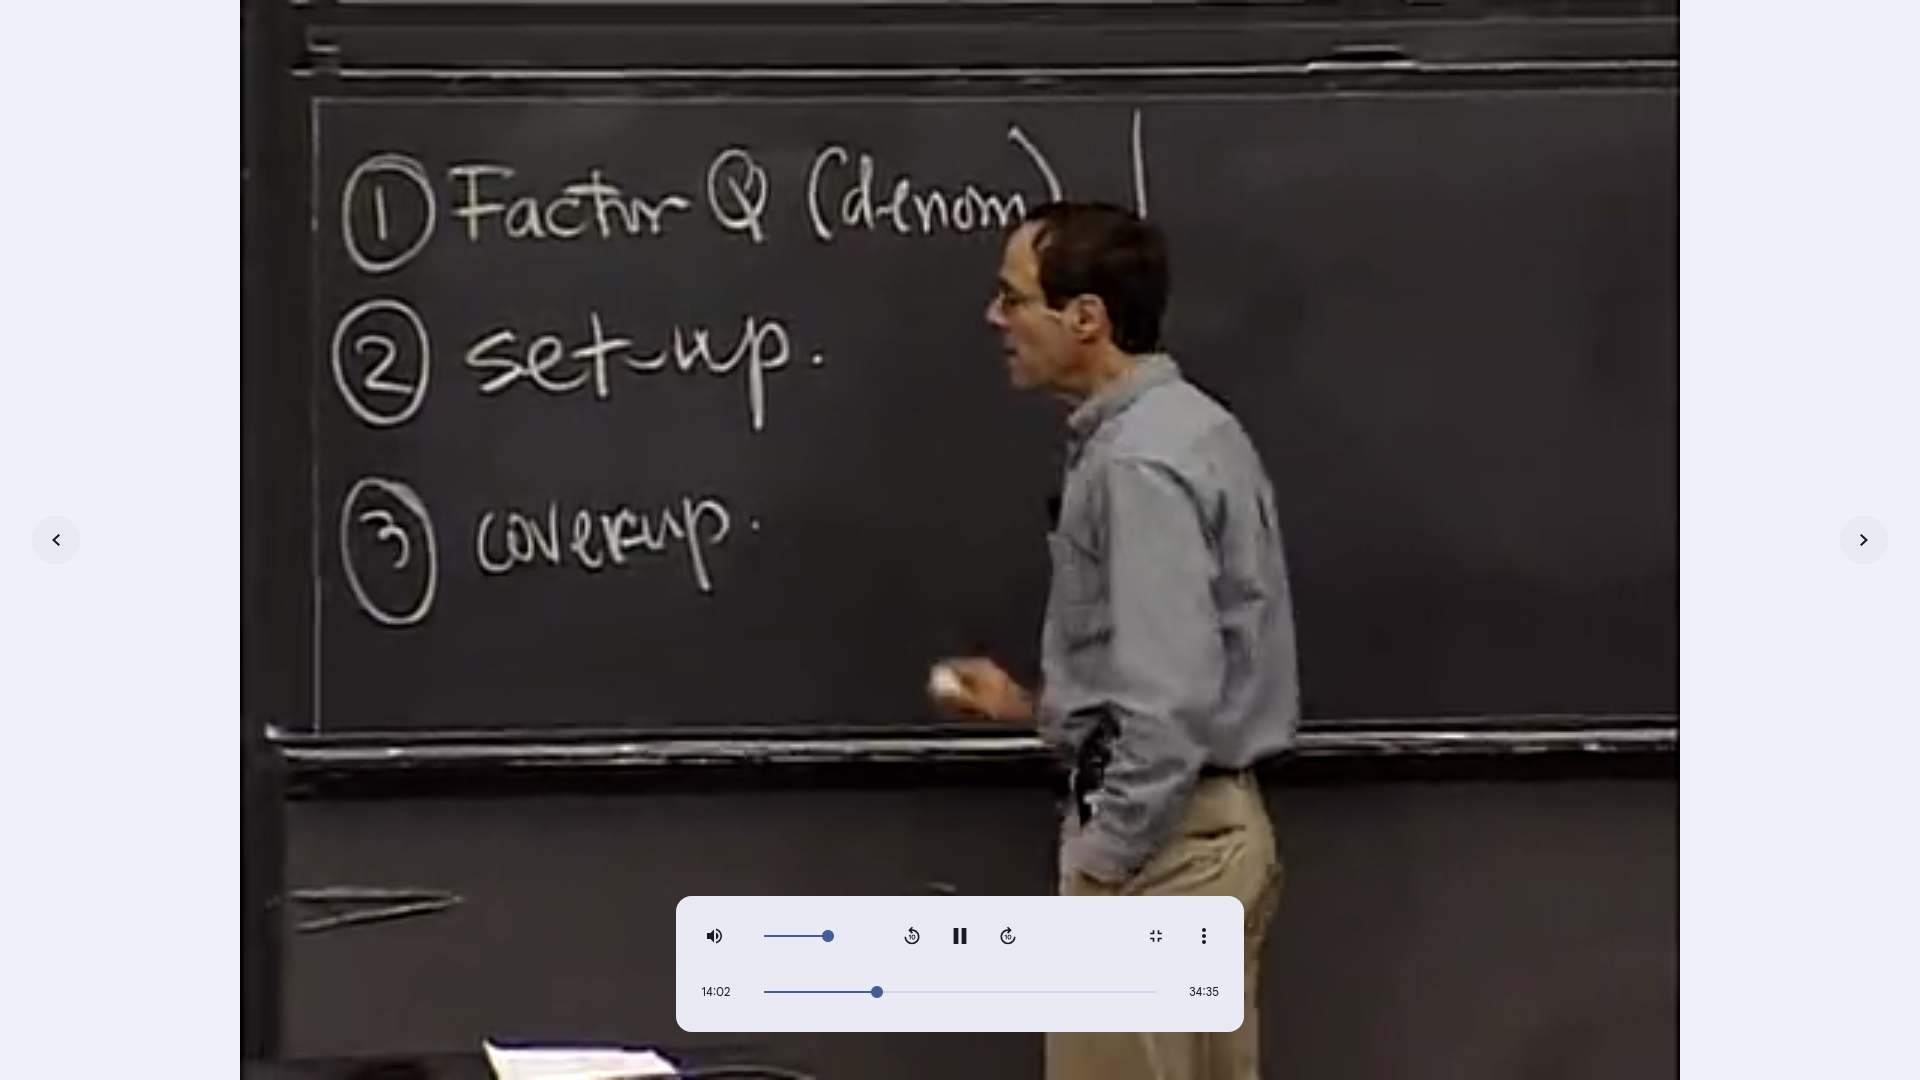 ① Factor Q (denom)
② set-up.
③ coverup.
14:02
34:35